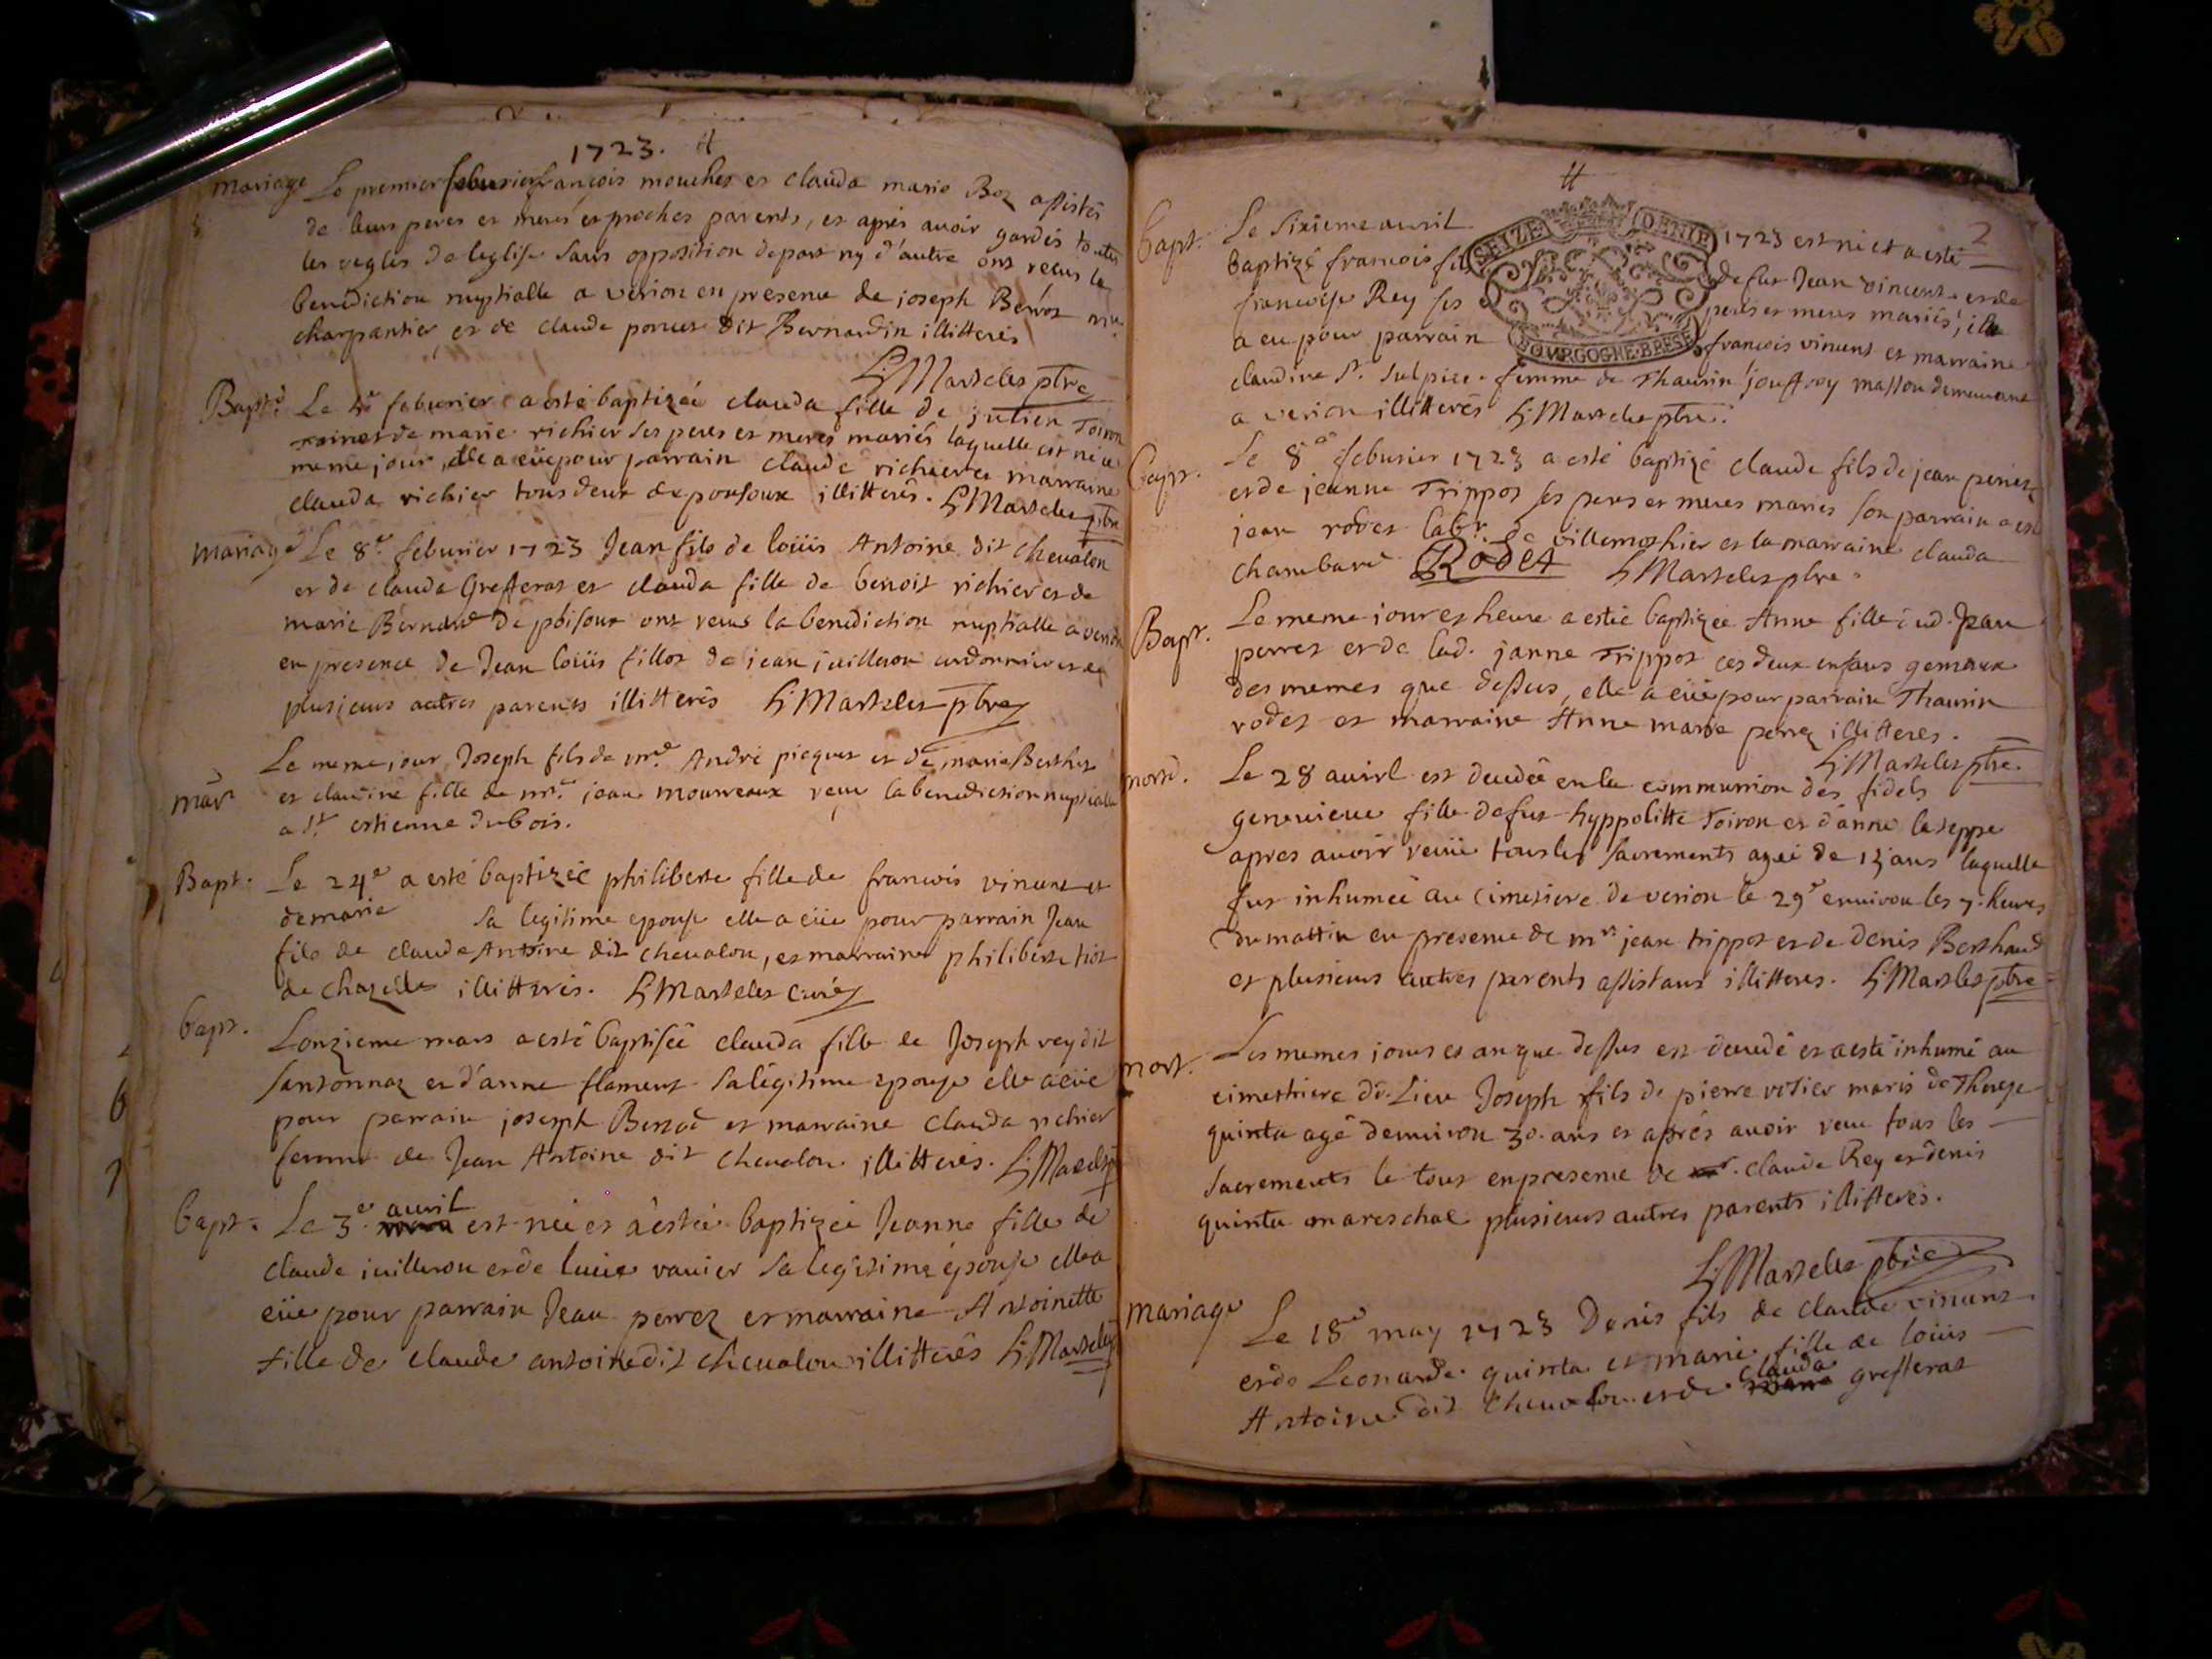 1723.
mariage Le premier feburier françois mouches et clauda marie Boz assistés
de leurs peres et meres et proches parents, et aprés auoir gardés toutes
les regles de leglise sans opposition de part ny d'autre ont recus la
benediction nuptialle a verion en presence de joseph
charpantier, et de claude dit Bernardin illitterés
ptre
Bapt. Le feburier a esté baptizée clauda fille de julien Toiron
et de marie richier ses peres et meres mariés laquelle est née le
meme jour, elle a eüe pour parrain claude richier et marraine
clauda richier tous deux de poisoux illitterés. ptre
mariage Le 8e feburier 1723 Jean fils de loüis Antoine dit cheualon
et de clauda Grefferat et clauda fille de benoit richier et de
marie Bernard de poisoux ont receus la benediction nuptialle a verion
en presence de Jean loüis fillot de jean juilleron cordonnier et de
plusieurs autres parents illitterés ptre
mar Le meme jour Joseph fils de mre André picquet et de marie Berthet
et claudine fille de mre jean mourreaux reçeu la benediction nuptialle
a st estienne du bois.
Bapt. Le 24e a esté baptizée philiberte fille de francois vincent et
de marie sa legitime epouse elle a eüe pour parrain Jean
fils de claude Antoine dit cheualon, et marraine philiberte tiot
de chazelle illitterés. curé
bapt. Lonzieme mars a esté baptisée clauda fille de Joseph rey dit
santonnaz et d'anne flament sa légitime epouse elle a eüe
pour parrain joseph et marraine clauda richier
femme de Jean Antoine dit cheualon illitterés.
bapt. Le 3e auril est née et a estée baptizée Jeanne fille de
claude juilleron et de lucie vauier sa legitime épouse elle a
eüe pour parrain Jean perrez et marraine Antoinette
fille de claude antoine dit cheualon illitterés
2
SEIZE DENIE
BOURGOGNE·BRESSE
bapt. Le sixieme auril 1723 est né et a esté
baptizé francois fils de feu Jean vincent et de
francoise Rey ses peres et meres mariés, il
a eu pour parrain francois vincent et marraine
claudine st sulpice femme de Thaurin jouffroy masson demeurant
a verion illitterés ptre.
bapt. Le 8e feburier 1723 a esté baptizé claude fils de jean perrez
et de jeanne Trippoz ses peres et meres mariés son parrain a esté
jean rodet labr. de villemothier et la marraine clauda
chambard Rodet ptre.
Bapt. Le meme jour et heure a estée baptizée Anne fille dud. Jean
perret et de lad. janne Trippoz ces deux enfans gemeaux
des memes que dessus, elle a eüe pour parrain Thaurin
rodet et marraine Anne marie perrez illitteres.
ptre.
mort. Le 28 auirl est decedée en la communion des fidels
geneuieue fille de fut hyppolitte Toiron et d'anne
apres auoir reçüe tous les sacrements agée de 13 ans laquelle
fut inhumée au cimetiere de verion le 29e enuiron les 7 heures
du mattin en presence de mre jean trippoz et de denis Berthaud
et plusieurs autres parents assistans illitteres. ptre
mort. Les memes jours et an que dessus est decedé et a esté inhumé au
cimethiere dud. Lieu Joseph fils de pierre vetier maris de Therese
quinta agé denuiron 30 ans et aprés auoir receu tous les
sacrements le tout en presence de claude Rey et denis
quinta mareschal plusieurs autres parents illitterés.
ptre
mariage Le 18e may 1723 Denis fils de claude vincent
et de Leonarde quinta et marie fille de loüis
Antoine dit cheualon et de clauda grefferat